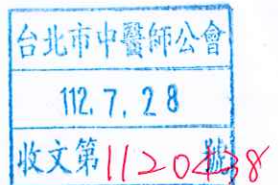 台北市中醫師公會
112.7.28
收文第1120438號